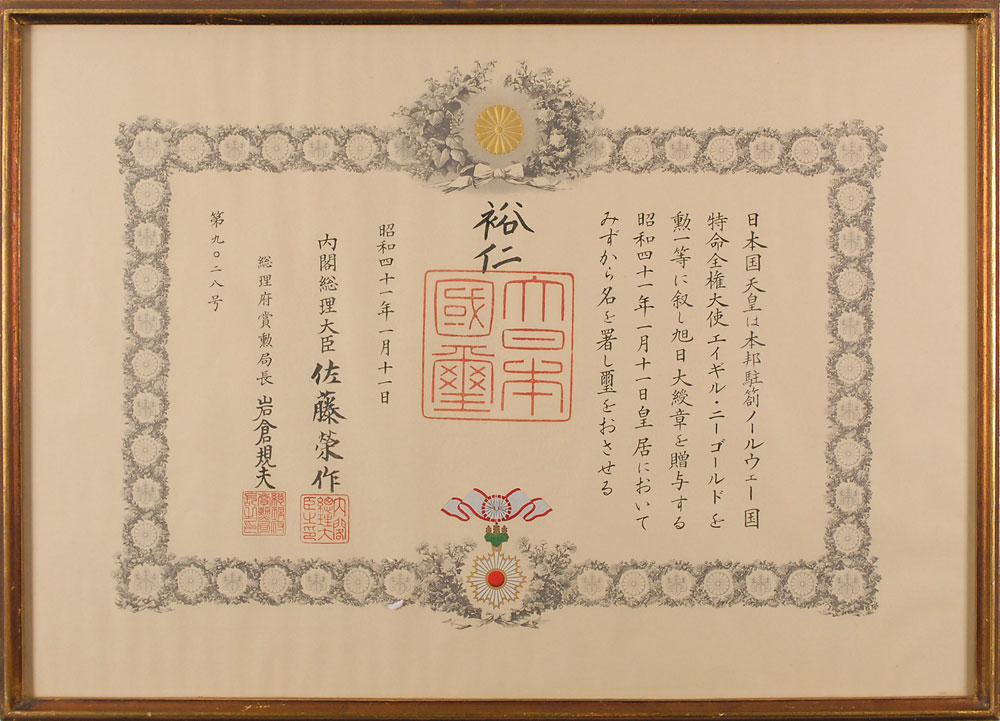 日本国天皇は本邦駐箚ノールウェー国
特命全権大使エイギル・ニーゴールドを
勲一等に叙し旭日大綬章を贈与する
昭和四十一年一月十一日皇居において
みずから名を署し璽をおさせる
裕仁
大日本
國璽
昭和四十一年一月十一日
内閣総理大臣 佐藤榮作
内閣
總理大
臣之印
総理府賞勲局長 岩倉規夫
第九〇二八号